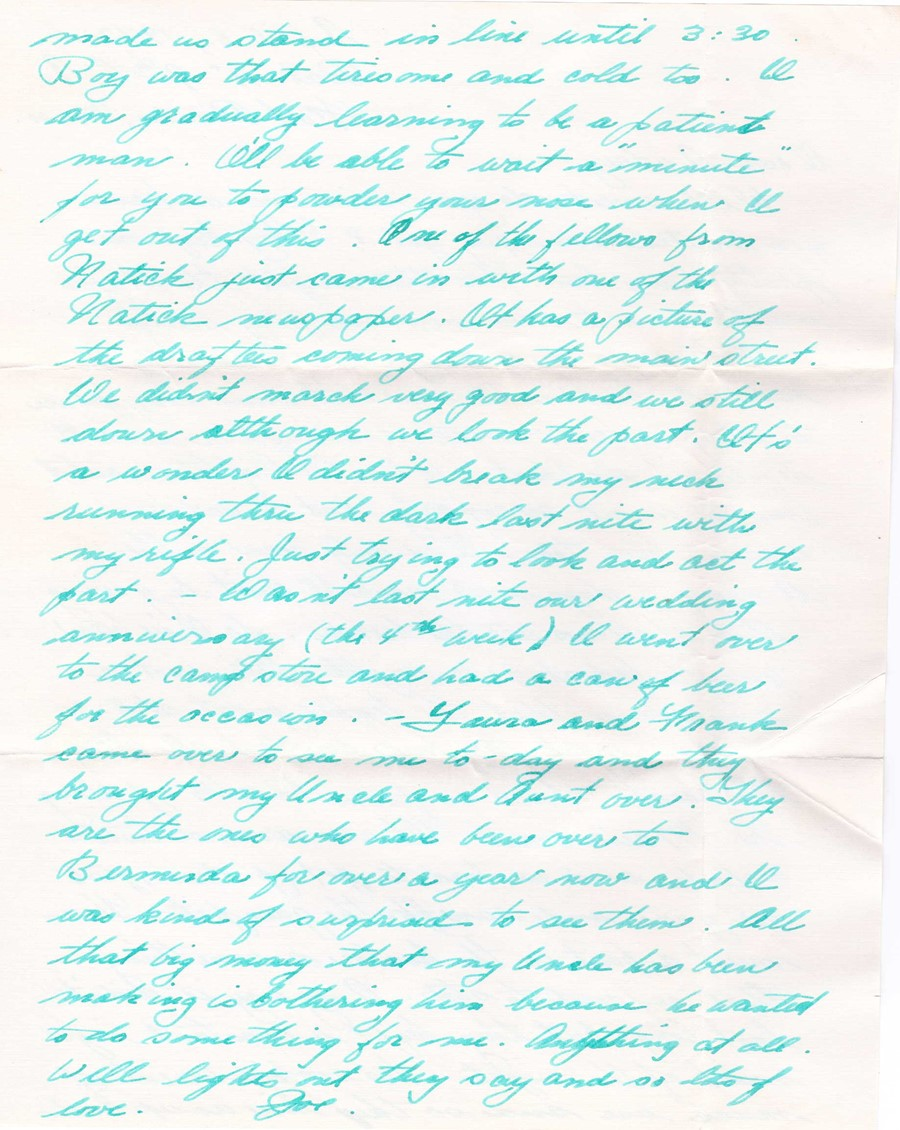 made us stand in line until 3:30.
Boy was that tiresome and cold too. I
am gradually learning to be a patient
man. I'll be able to wait a "minute"
for you to powder your nose when I
get out of this. One of the fellows from
Natick just came in with one of the
Natick newspaper. It has a picture of
the draftees coming down the main street.
We didn't march very good and we still
down although we look the part. It's
a wonder I didn't break my neck
running thru the dark last nite with
my rifle. Just trying to look and act the
part. - Wasn't last nite our wedding
anniversary (the 4th week) I went over
to the camp store and had a can of beer
for the occasion. - Laura and Frank
came over to see me to-day and they
brought my Uncle and Aunt over. They
are the ones who have been over to
Bermuda for over a year now and I
was kind of surprised to see them. All
that big money that my Uncle has been
making is bothering him because he wanted
to do something for me. Anything at all.
Well lights out they say and so lots of
love. Joe.